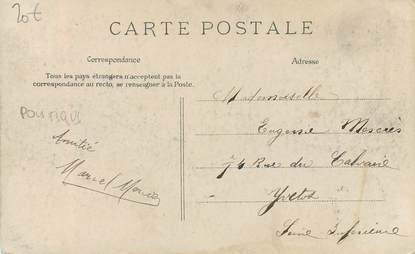 20€
CARTE POSTALE
Correspondance
Adresse
Tous les pays étrangers n'acceptent pas la
correspondance au recto, se renseigner à la Poste.
POLITIQUE
Amitié
Marcel
Mademoiselle
Eugenie
74 Rue du Calvaire
Yvetot
Seine Inférieure